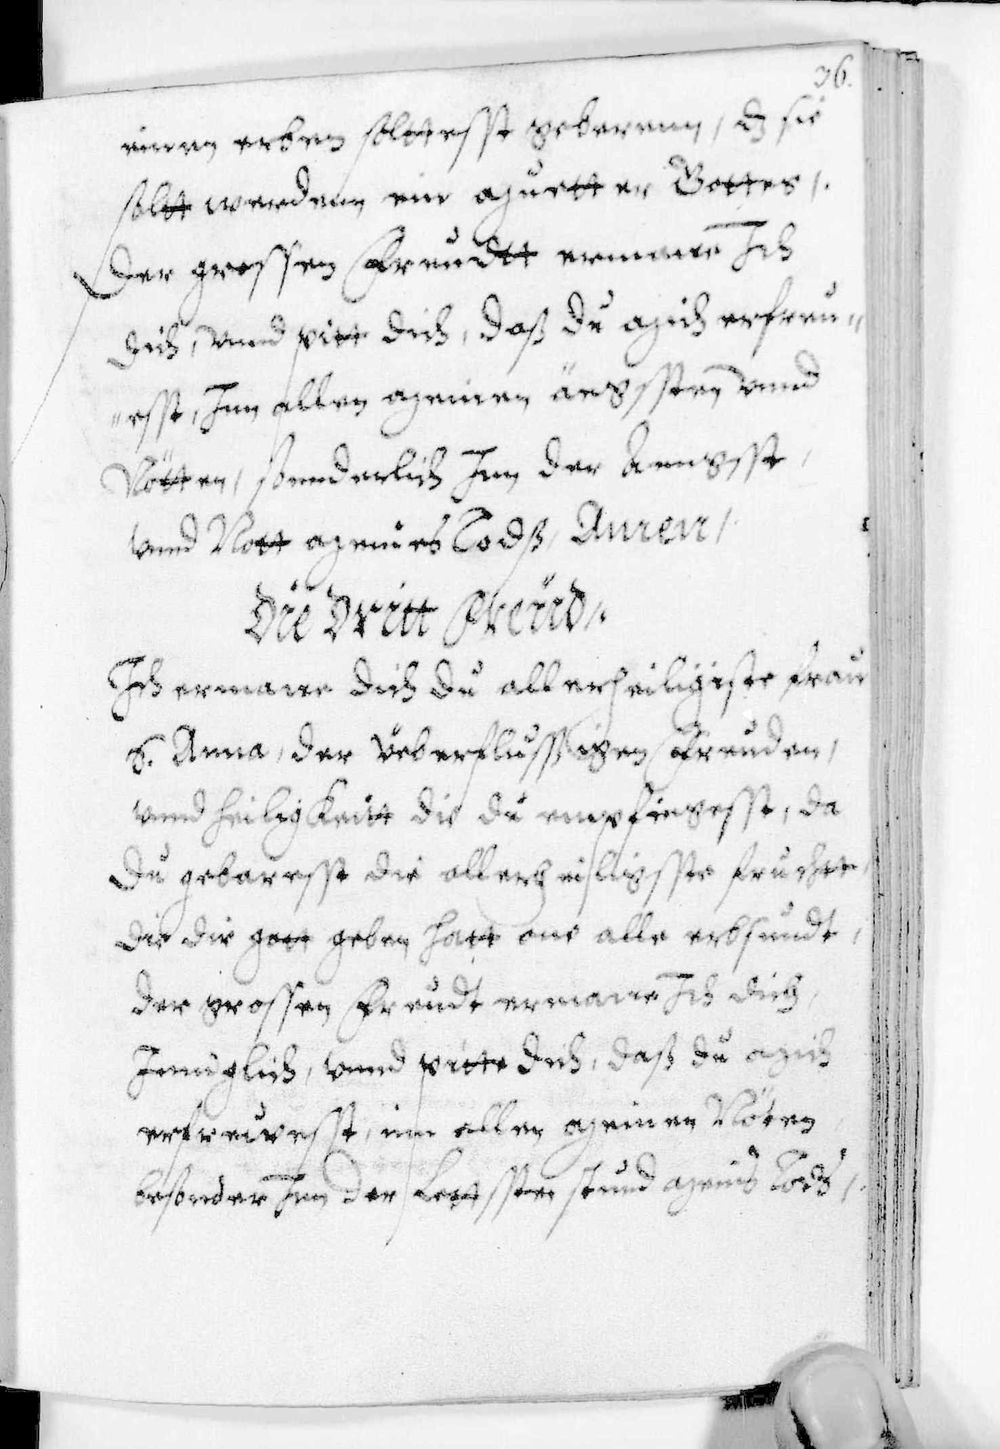 36.
einen erben soltesst geberenn, dz sie
soltt werdenn ein muetter Gottes,.
Der grossen Freudtt ermane Ich
dich, vnnd pitt dich, daß du mich erfreu„
„esst, Inn allen meinen ängsten vnnd
Nötten, sonnderlich Inn der Anngsst,
vnnd Nott meines Todß, Amen,.
Die Dritt Freüd,.
Ich ermane dich du allerheiligiste frau
S. Anna, der überflussigen Freuden,
vnnd heiligkeitt die du empfingesst, da
du gebaresst die allerheiligsste frucht,
die dir gott geben hatt one alle erbsundt,
der grossen Freudt ermane Ich dich,
Inniglich, vnnd pitte dich, daß du mich
erfreuwesst, inn allen meinen Nöten
besonder Inn der Lettsten stund meins Tods,.